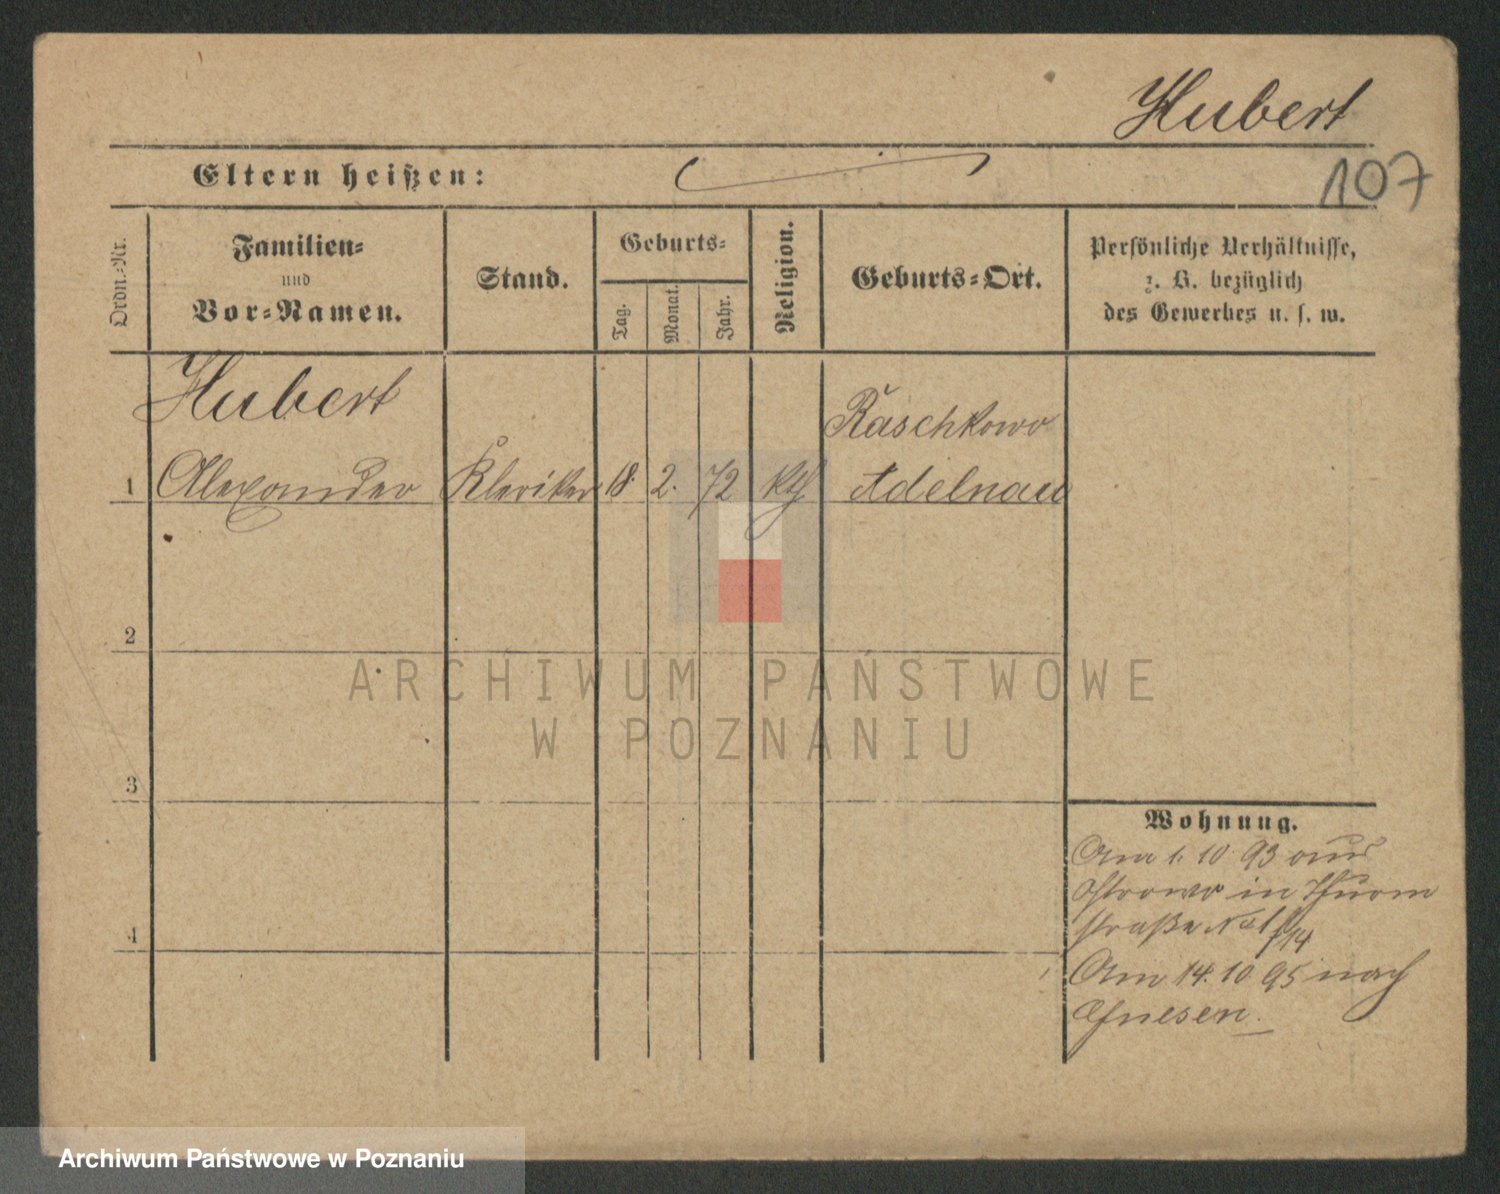 Hubert
107
Eltern heißen:
Ordn.-Nr.
Familien-
und
Vor-Namen.
Stand.
Geburts-
Tag.
Monat.
Jahr.
Religion.
Geburts-Ort.
Persönliche Verhältnisse,
z. B. bezüglich
des Gewerbes u. s. w.
Hubert
Raschkowo
1 Alexander Kleriker 18. 2. 72 kth Adelnau
2
3
4
Wohnung.
Am 1. 10 93 aus
Ostrowo in Thurm
straße No
Am 14. 10 95 nach
Gnesen.
ARCHIWUM PAŃSTWOWE
W POZNANIU
Archiwum Państwowe w Poznaniu